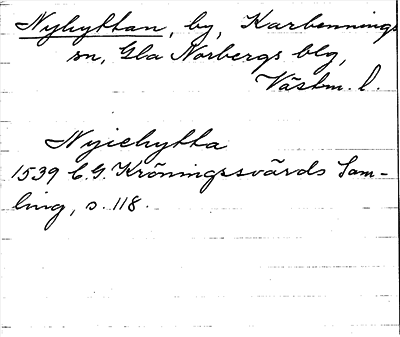 Nyhyttan, by, Karbennings
sn, Gla Norbergs blg,
Västm. l.
Nyiehytta
1539 C.G. Kröningssvärds Sam-
ling, s. 118.